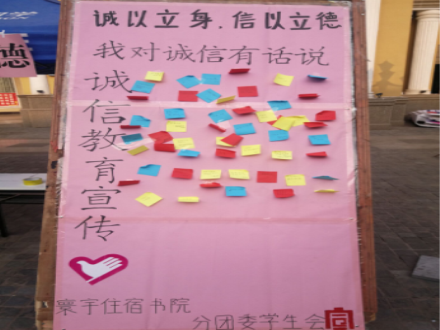 诚以立身.信以立德
我对诚信有话说
诚信教育宣传
寰宇住宿书院
分团委学生会
德